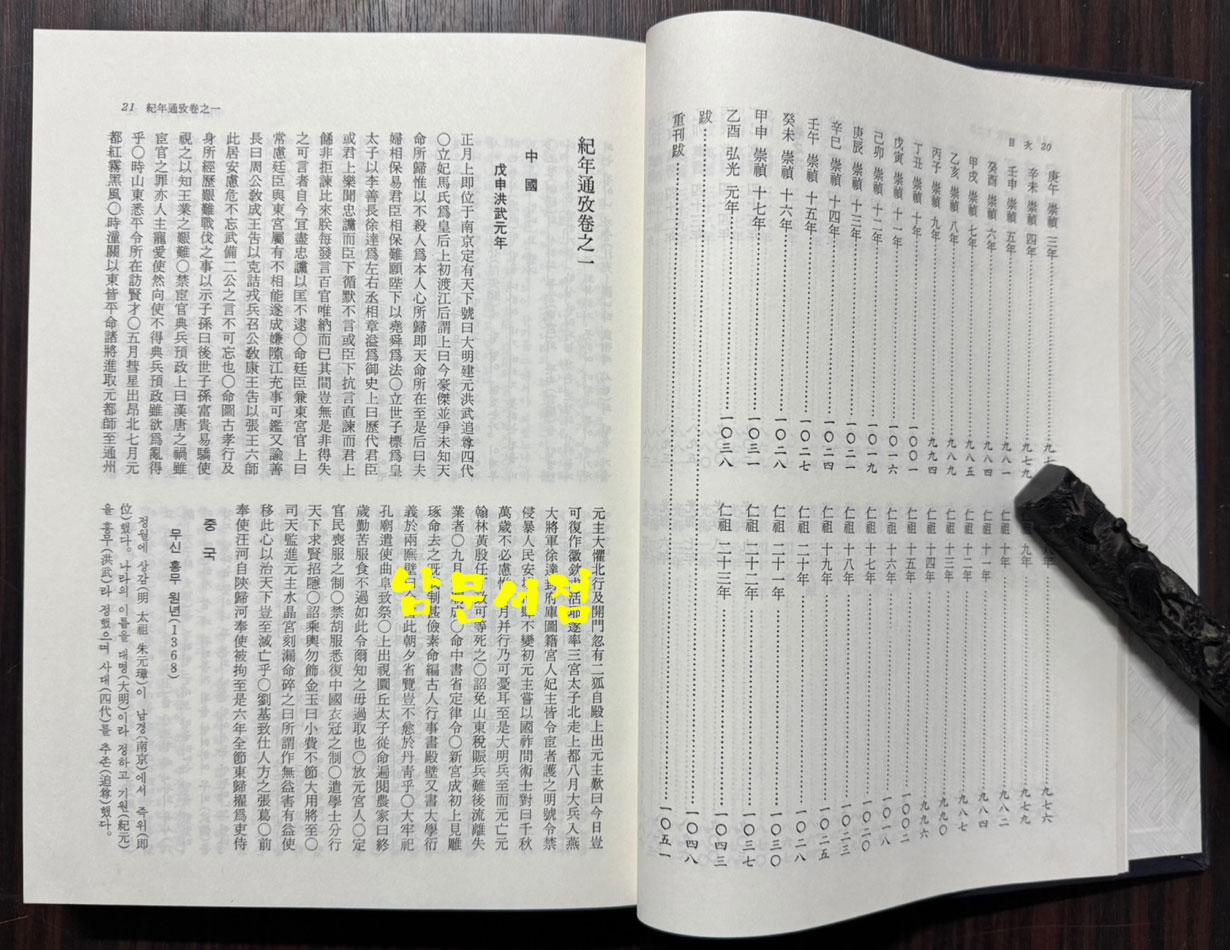 20 目次
庚午 崇禎 三年 九七
仁祖 八年 九七六
辛未 崇禎 四年 九七九
九年 九七九
壬申 崇禎 五年 九八一
仁祖 十年 九八二
癸酉 崇禎 六年 九八四
仁祖 十一年 九八四
甲戌 崇禎 七年 九八五
仁祖 十二年 九八七
乙亥 崇禎 八年 九八九
仁祖 十三年 九九〇
丙子 崇禎 九年 九九四
仁祖 十四年 九九六
丁丑 崇禎 十年 一〇〇一
仁祖 十五年 一〇〇二
戊寅 崇禎 十一年 一〇一六
仁祖 十六年 一〇一八
己卯 崇禎 十二年 一〇一九
仁祖 十七年 一〇二〇
庚辰 崇禎 十三年 一〇二一
仁祖 十八年 一〇二三
辛巳 崇禎 十四年 一〇二四
仁祖 十九年 一〇二五
壬午 崇禎 十五年 一〇二七
仁祖 二十年 一〇二八
癸未 崇禎 十六年 一〇二八
仁祖 二十一年 一〇三〇
甲申 崇禎 十七年 一〇三一
仁祖 二十二年 一〇三七
乙酉 弘光 元年 一〇三八
仁祖 二十三年 一〇四三
跋 一〇四八
重刊跋 一〇五一
21 紀年通攷卷之一
紀年通攷卷之一
中國
戊申洪武元年
正月上卽位于南京定有天下號曰大明建元洪武追尊四代
〇立妃馬氏爲皇后上初渡江后謂上曰今豪傑並爭未知天
命所歸惟以不殺人爲本人心所歸卽天命所在至是后曰夫
婦相保易君臣相保難願陛下以堯舜爲法〇立世子標爲皇
太子以李善長徐達爲左右丞相章溢爲御史上曰歷代君臣
或君上樂聞忠讜而臣下循默不言或臣下抗言直諫而君上
餙非拒諫比來朕每發言百官唯納而已其間豈無是非得失
之可言者自今宜盡忠讜以匡不逮〇命廷臣兼東宮官上曰
常慮廷臣與東宮屬有不相能遂成嫌隙江充事可鑑又諭善
長曰周公敎成王告以克詰戎兵召公敎康王告以張王六師
此居安慮危不忘武備二公之言不可忘也〇命圖古孝行及
身所經歷艱難戰伐之事以示子孫曰後世子孫富貴易驕使
視之以知王業之艱難〇禁宦官典兵預政上曰漢唐之禍雖
宦官之罪亦人主寵愛使然向使不得典兵預政雖欲爲亂得
乎〇時山東悉平令所在訪賢才〇五月彗星出昴北七月元
都紅霧黑風〇時潼關以東皆平命諸將進取元都師至通州
元主大懼北行及開門忽有二狐自殿上出元主歎曰今日豈
可復作徽欽求活耶遂率三宮太子北走上都八月大兵入燕
大將軍徐達封府庫圖籍宮人妃主皆令宦者護之明號令禁
侵暴人民安 不變初元主嘗以國祚問術士對曰千秋
萬歲不必慮惟 月并行乃可憂耳至是大明兵至而元亡元
翰林黃殷任 可等死之〇詔免山東稅賑兵難後流離失
業者〇九月 成〇命中書省定律令〇新宮成初上見雕
琢命去之旣 制甚儉素命編古人行事書殿壁又書大學衍
義於兩廡壁曰 此朝夕省覽豈不愈於丹靑乎〇大牢祀
孔廟遣使曲阜致祭〇上出視圜丘太子從命遍閱農家曰終
歲勤苦服食不過如此令爾知之毋過取也〇放元宮人〇定
官民喪服之制〇禁胡服悉復中國衣冠之制〇遣學士分行
天下求賢招隱〇詔乘輿勿飾金玉曰小費不節大用將至〇
司天監進元主水晶宮刻漏命碎之曰所謂作無益害有益使
移此心以治天下豈至滅亡乎〇劉基致仕人方之張葛〇前
奉使汪河自陝歸河奉使被拘至是六年全節東歸擢爲吏侍
중국
무신 홍무 원년(1368)
정월에 상감(明 太祖 朱元璋)이 남경(南京)에서 즉위(卽
位)했다。나라의 이름을 대명(大明)이라 정하고 기원(紀元)
을 홍무(洪武)라 정했으며 사대(四代)를 추존(追尊)했다。
남문서점